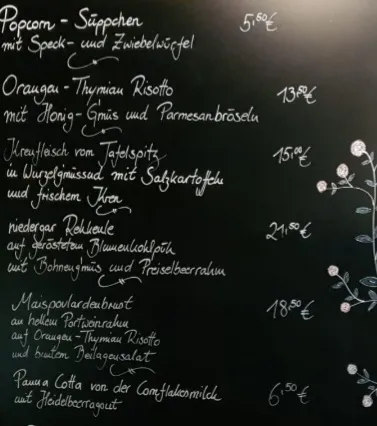 Popcorn - Süppchen 5,50€
mit Speck- und Zwiebelwürfel
Orangen - Thymian Risotto 13,50€
mit Honig- G'müs und Parmesanbröseln
Krenfleisch vom Tafelspitz 15,00€
in Wurzelgmüssud mit Salzkartoffeln
und frischem Kren
niedergar Rehkeule 21,50€
auf geröstetem Blumenkohlpüh
mit Bohneng'müs und Preiselbeerrahm
Maispoulardenbrust 18,50€
an hellem Portweinrahm
auf Orangen - Thymian Risotto
und buntem Beilagensalat
Panna Cotta von der Cornflakesmilch 6,50€
mit Heidelbeerragout